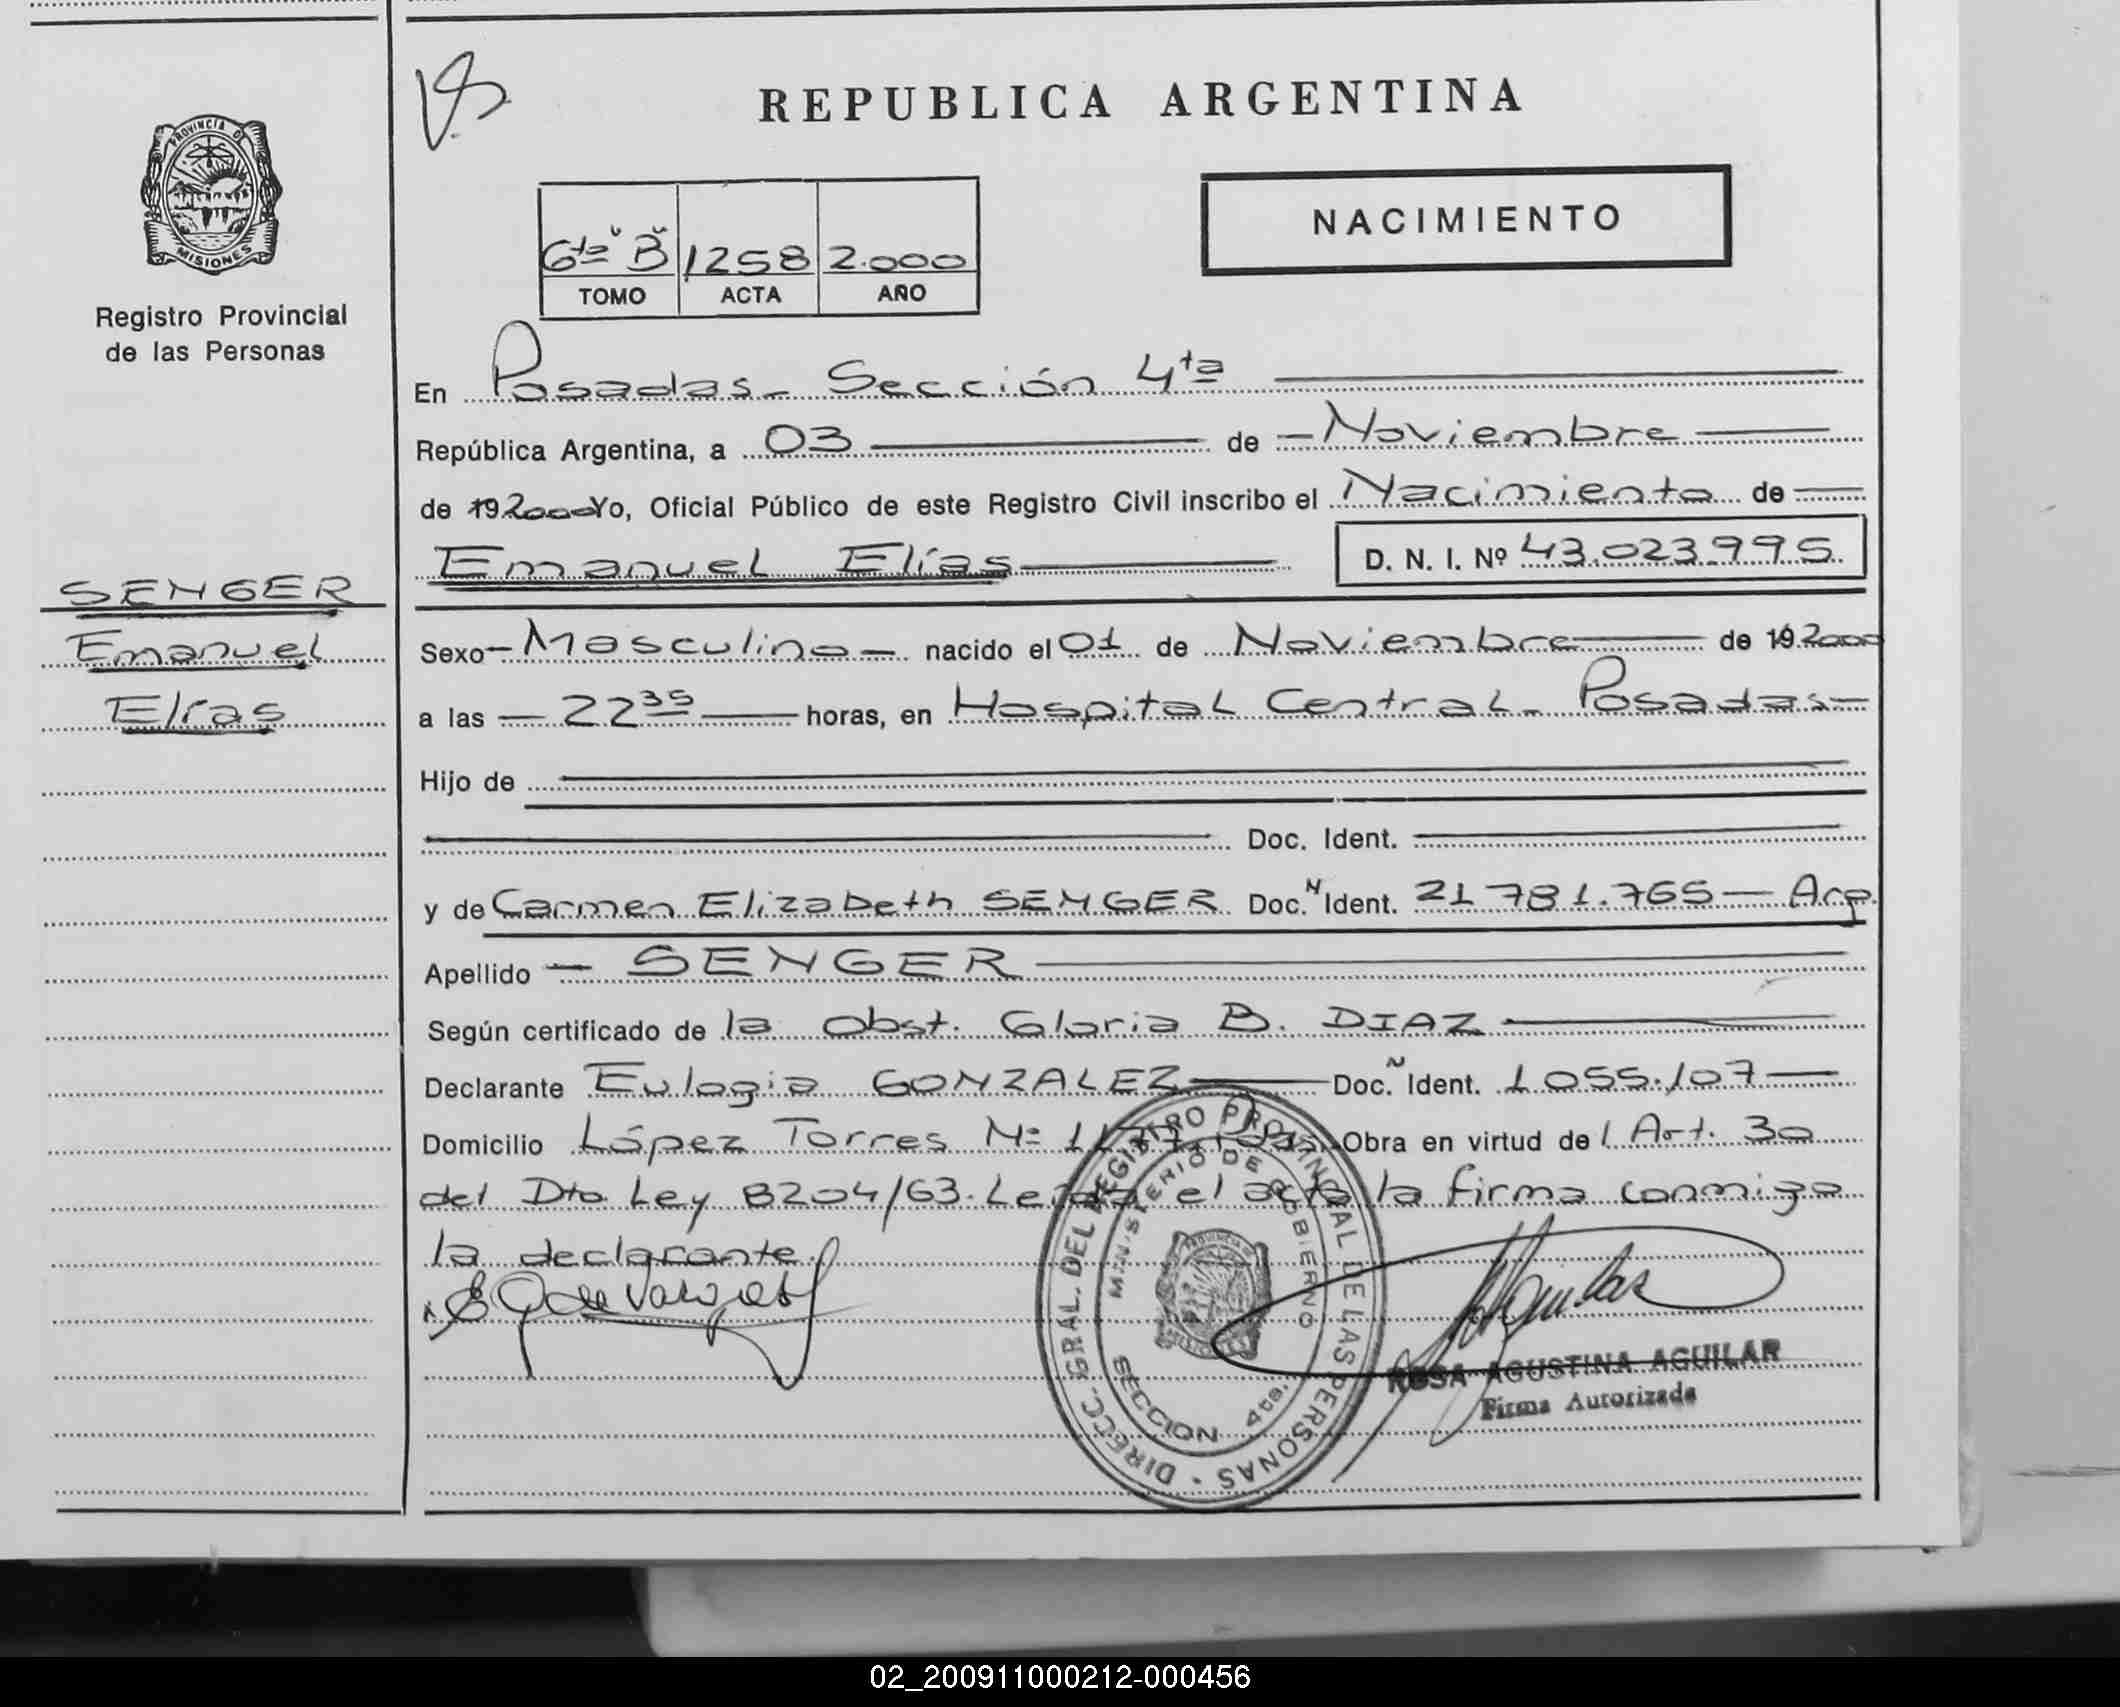 REPUBLICA ARGENTINA
PROVINCIA DE
MISIONES
Registro Provincial
de las Personas
NACIMIENTO
6ta "B" 1258 2.000
TOMO ACTA AÑO
En Posadas - Sección 4ta
República Argentina, a 03 de Noviembre
de 19 2000 Yo, Oficial Público de este Registro Civil inscribo el Nacimiento de
Emanuel Elías D. N. I. Nº 43.023.995
SENGER
Emanuel
Elías
Sexo Masculino nacido el 01 de Noviembre de 19 2000
a las 22 35 horas, en Hospital Central - Posadas
Hijo de
Doc. Ident.
y de Carmen Elizabeth SENGER Doc. N Ident. 21 781.765 - Arg.
Apellido SENGER
Según certificado de la Obst. Gloria B. DIAZ
Declarante Eulogia GONZALEZ Doc. Ident. 1 055.107
Domicilio López Torres Nº Obra en virtud del Art. 30
del Dto. Ley 8204/63. Leída el acta la firma conmigo
la declarante.
DIRECC. GRAL. DEL REGISTRO PROVINCIAL DE LAS PERSONAS
MINISTERIO DE GOBIERNO
SECCION 4ta.
ROSA AGUSTINA AGUILAR
Firma Autorizada
02_200911000212-000456